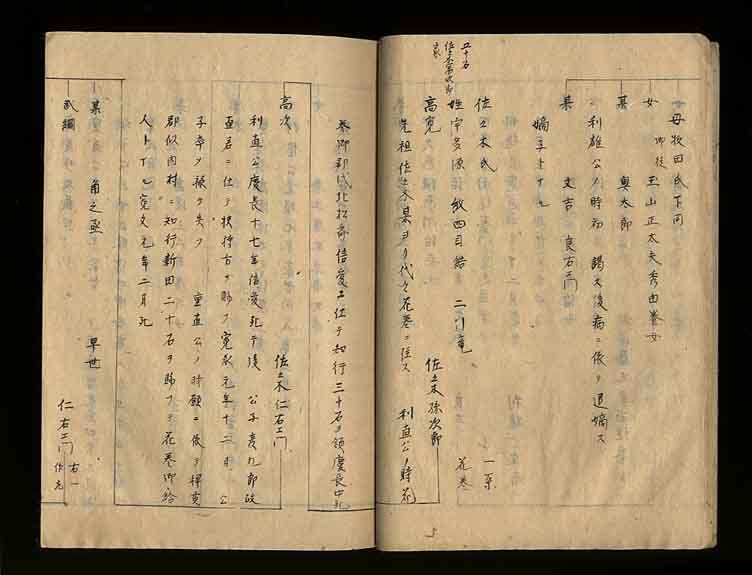 女 母牧田氏下同
御枝 玉山正太夫秀由養女
某 奥太郎
利雄公ノ時初 謁文後病ニ依リ退嫡ス
某 文吉 良右エ門
嫡子ト
五十石
佐々木
佐々木氏 一系 花巻
姓宇多源 紋四目結
高寛 佐々木孫次郎
先祖佐々木某ヨリ代々花巻ニ住ス 利直公ノ時花
巻御郡代北松斎信愛ニ仕テ知行三十石ヲ領慶長中死
高次 佐々木仁右エ門
利直公慶長十七年信愛死テ後 公子彦九郎政
直君ニ仕テ扶持方ヲ賜フ寛永元年十二月 公
子卒ノ後失フ 重直公ノ時願ニ依テ稗貫
郡似内村ニ知行新田二十石ヲ賜フテ花巻御給
人トナル寛文元年二月死
某 角之丞 早世
武綱 仁右エ門